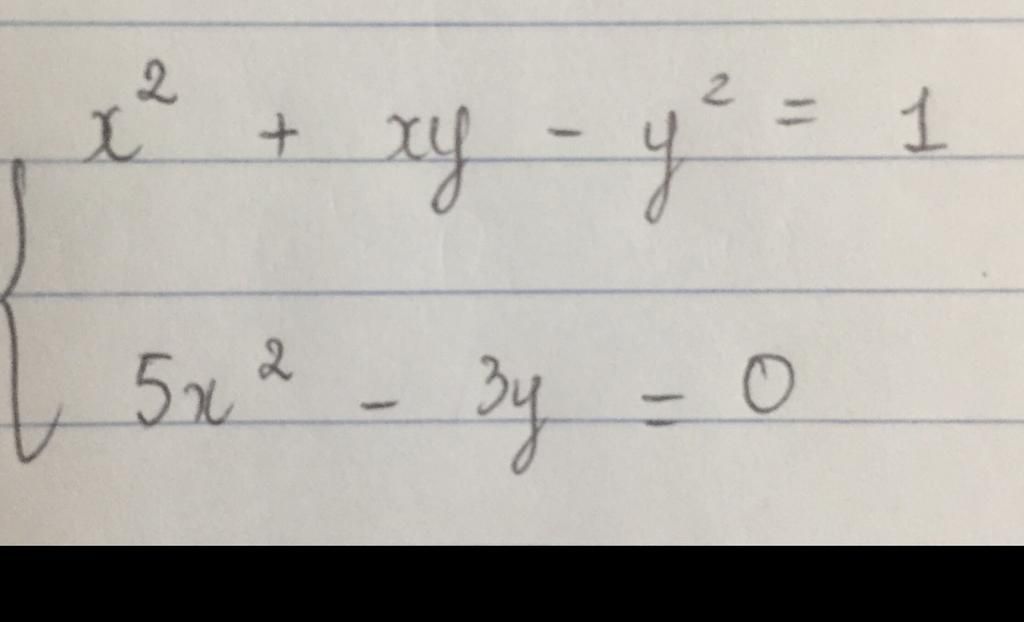 x² + xy - y² = 1
5x² - 3y = 0